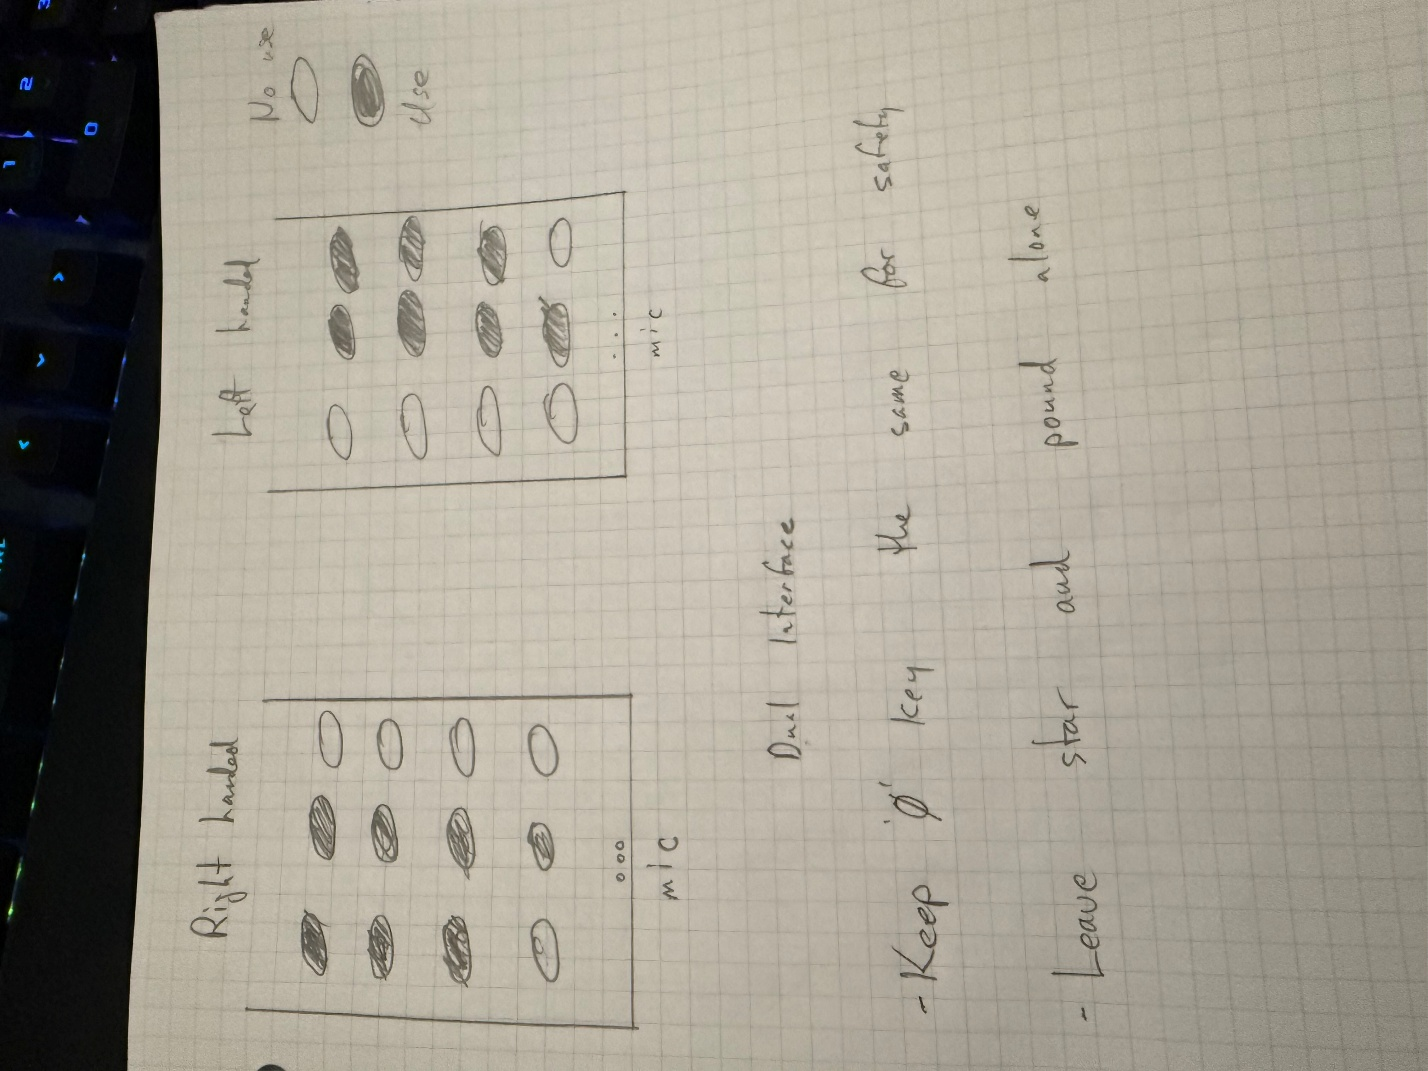 Right handed
Left handed
No use
Use
mic
mic
Dual Interface
- Keep 'Ø' key the same for safety
- Leave star and pound alone
3
2
1
0